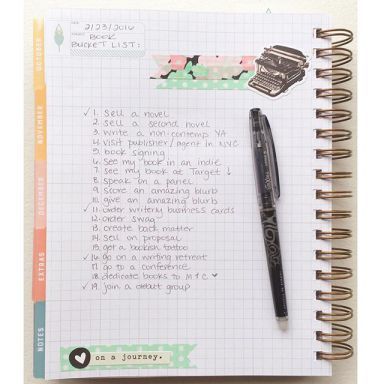 DATE 2/23/2016
SUBJECT BOOK
BUCKET LIST:
OCTOBER
NOVEMBER
DECEMBER
EXTRAS
NOTES
✓ 1. sell a novel
2. sell a second novel
3. write a non-contemp YA
4. visit publisher/agent in NYC
5. book signing
6. see my book in an indie
7. see my book at Target ↓
8. speak on a panel
9. score an amazing blurb
10. give an amazing blurb
✓ 11. order writerly business cards
12. order swag
13. create back matter
14. sell on proposal
15. get a bookish tattoo
✓ 16. go on a writing retreat
17. go to a conference
18. dedicate books to M+C ♥
✓ 19. join a debut group
on a journey.